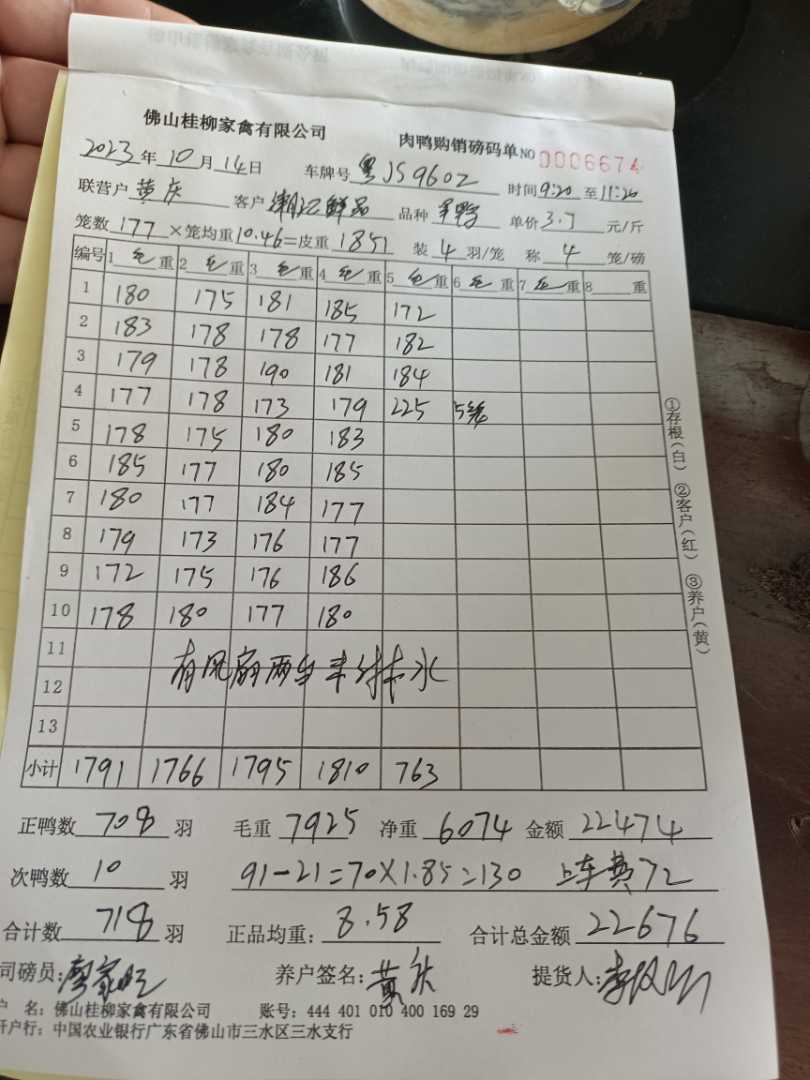 佛山桂柳家禽有限公司 肉鸭购销磅码单 NO 0006674
2023年10月14日 车牌号 粤JS9602 时间9:20至11:20
联营户 黄庆 客户 潮记鲜品 品种 单价3.7元/斤
笼数 177 ×笼均重10.46=皮重 1851 装 4 羽/笼 称 4 笼/磅
编号 1毛重 2毛重 3毛重 4毛重 5毛重 6毛重 7毛重 8 重
1 180 175 181 185 172
2 183 178 178 177 182
3 179 178 190 181 184
4 177 178 173 179 225 5笼
5 178 175 180 183
6 185 177 180 185
7 180 177 184 177
8 179 173 176 177
9 172 175 176 186
10 178 180 177 180
11
有风扇两台 水
12
13
小计 1791 1766 1795 1810 763
①存根(白) ②客户(红) ③养户(黄)
正鸭数 708 羽 毛重 7925 净重 6074 金额 22474
次鸭数 10 羽 91-21=70×1.85=130 上车费72
合计数 718 羽 正品均重: 8.58 合计总金额 22676
司磅员: 廖家旺 养户签名: 黄庆 提货人:
户 名: 佛山桂柳家禽有限公司 账号: 444 401 010 400 169 29
开户行: 中国农业银行广东省佛山市三水区三水支行